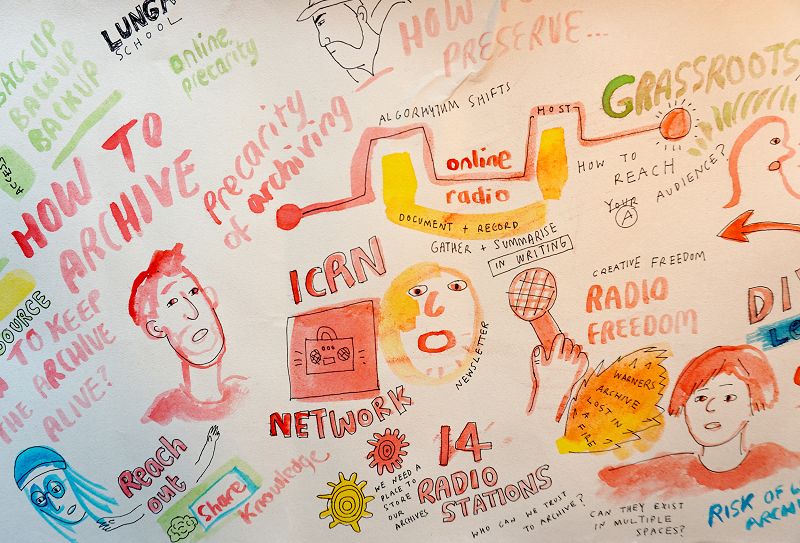 BACK UP
BACK UP
BACK UP
LUNGA
SCHOOL
online
precarity
HOW TO
PRESERVE...
ALGORHYTHM SHIFTS
HOST
GRASSROOTS
ACCESS
HOW TO
ARCHIVE
precarity
of archiving
online
radio
DOCUMENT + RECORD
GATHER + SUMMARISE
IN WRITING
HOW TO
REACH
YOUR AUDIENCE?
A
TO KEEP
THE ARCHIVE
ALIVE?
ICRN
NETWORK
NEWSLETTER
CREATIVE FREEDOM
RADIO
FREEDOM
WARNERS
ARCHIVE
LOST IN
A
FIRE
Reach
out
Share
Knowledge
WE NEED A
PLACE TO
STORE
OUR
ARCHIVES
14
RADIO
STATIONS
WHO CAN WE TRUST
TO ARCHIVE?
CAN THEY EXIST
IN MULTIPLE
SPACES?
RISK OF